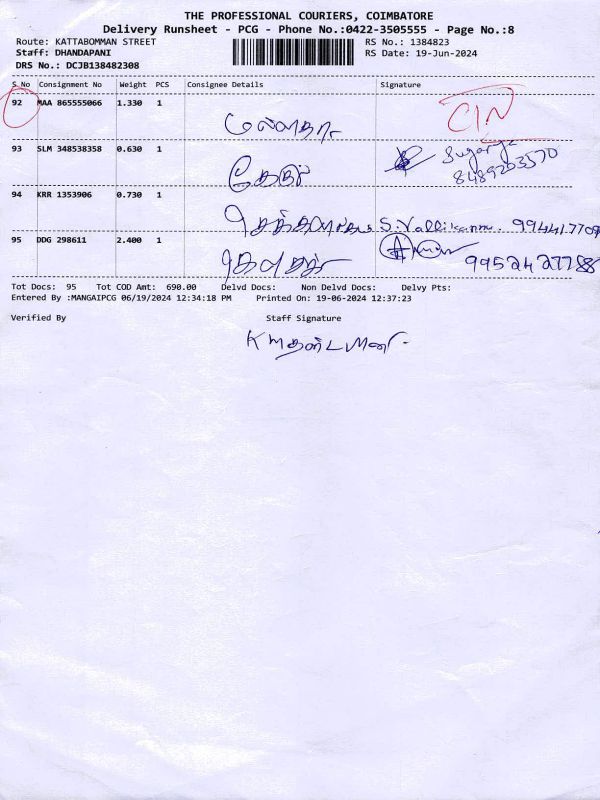 THE PROFESSIONAL COURIERS, COIMBATORE
Delivery Runsheet - PCG - Phone No.:0422-3505555 - Page No.:8
Route: KATTABOMMAN STREET RS No.: 1384823
Staff: DHANDAPANI RS Date: 19-Jun-2024
DRS No.: DCJB138482308
S.No Consignment No Weight PCS Consignee Details Signature
92 MAA 865555066 1.330 1
93 SLM 348538358 0.630 1
94 KRR 1353906 0.730 1 S.Vallikannu. 9944417709
95 DDG 298611 2.400 1 9952427788
Tot Docs: 95 Tot COD Amt: 690.00 Delvd Docs: Non Delvd Docs: Delvy Pts:
Entered By :MANGAIPCG 06/19/2024 12:34:18 PM Printed On: 19-06-2024 12:37:23
Verified By Staff Signature